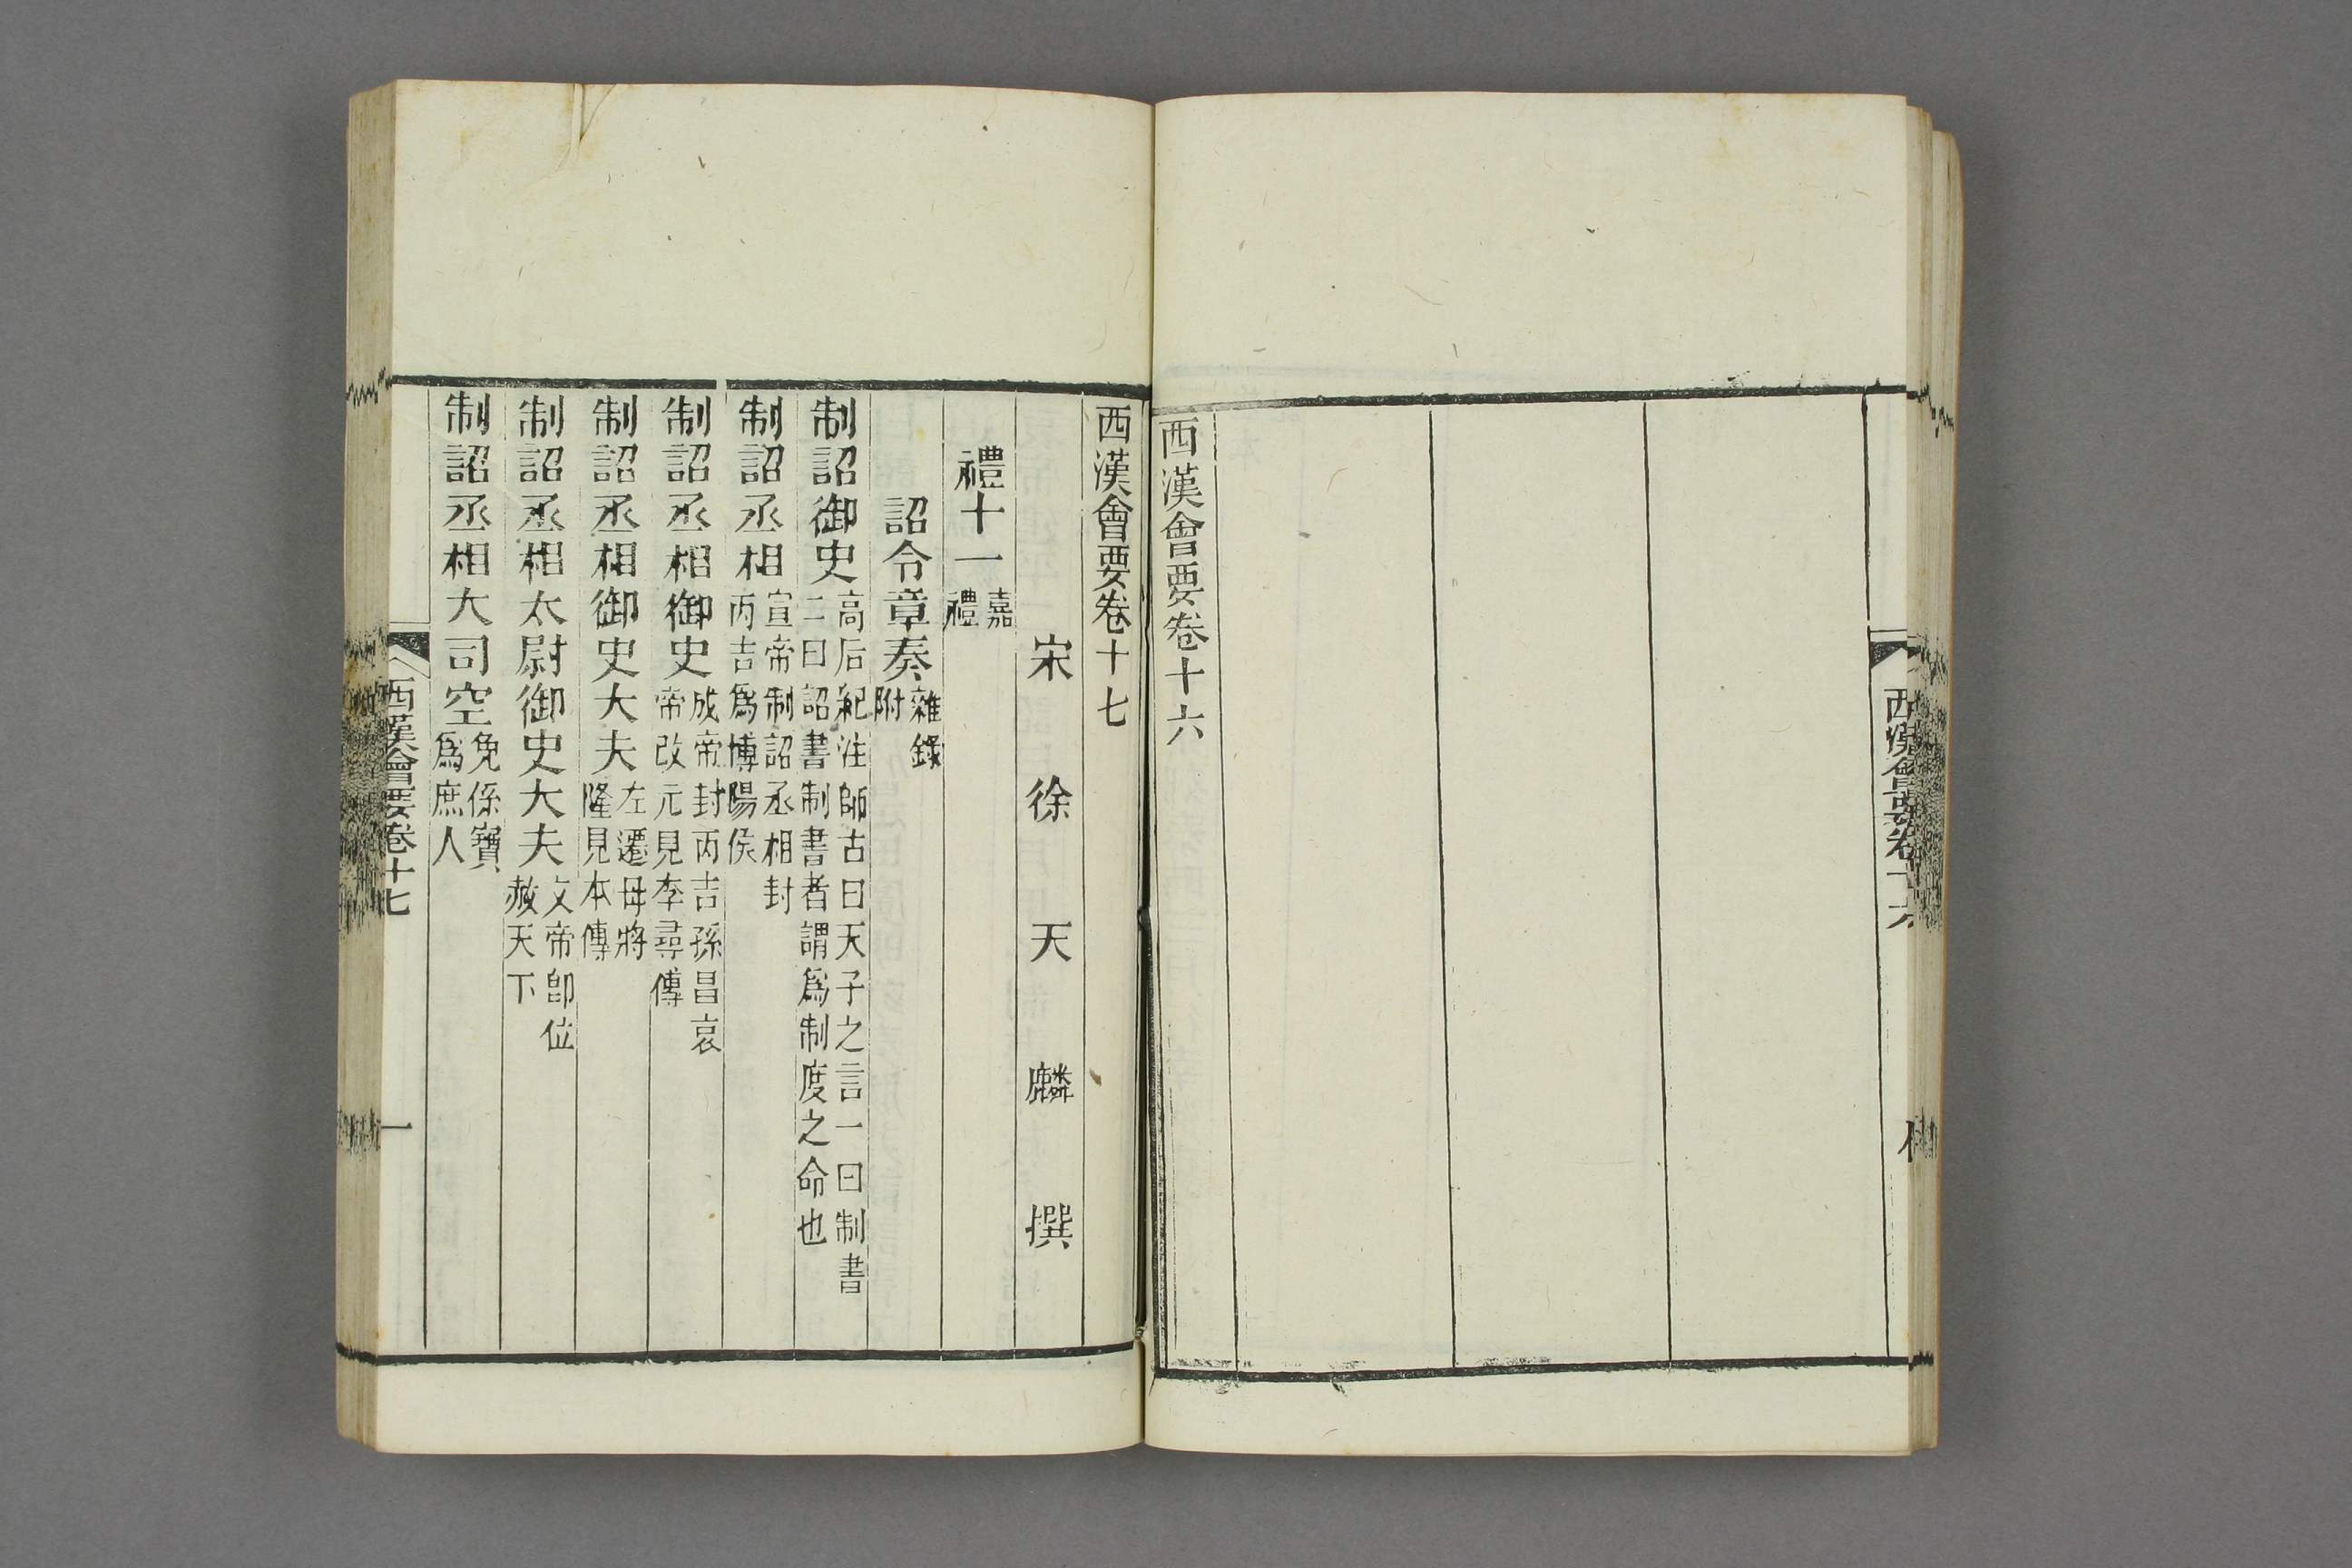 西漢會要卷十六
西漢會要卷十六
西漢會要卷十七
宋徐天麟撰
禮十一嘉禮
詔令章奏雜錄附
制詔御史高后紀注師古曰天子之言一曰制書二曰詔書制書者謂爲制度之命也
制詔丞相宣帝制詔丞相封丙吉爲博陽侯
制詔丞相御史成帝封丙吉孫昌哀帝改元見李尋傳
制詔丞相御史大夫左遷毋將隆見本傳
制詔丞相太尉御史大夫文帝卽位赦天下
制詔丞相大司空免孫寶爲庶人
西漢會要卷十七
一